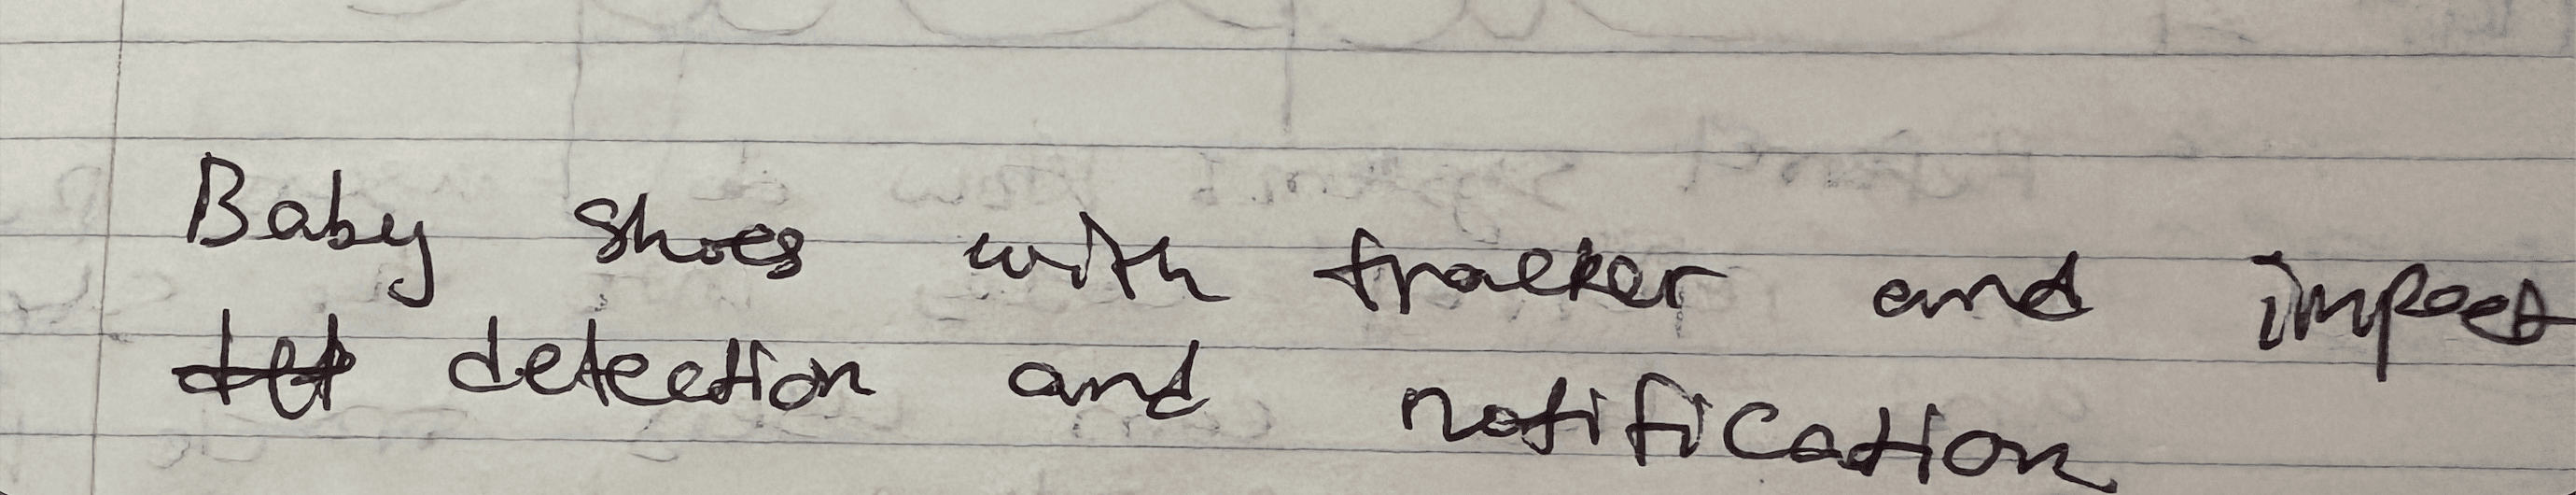 Baby shoes with tracker and impact
detection and notification